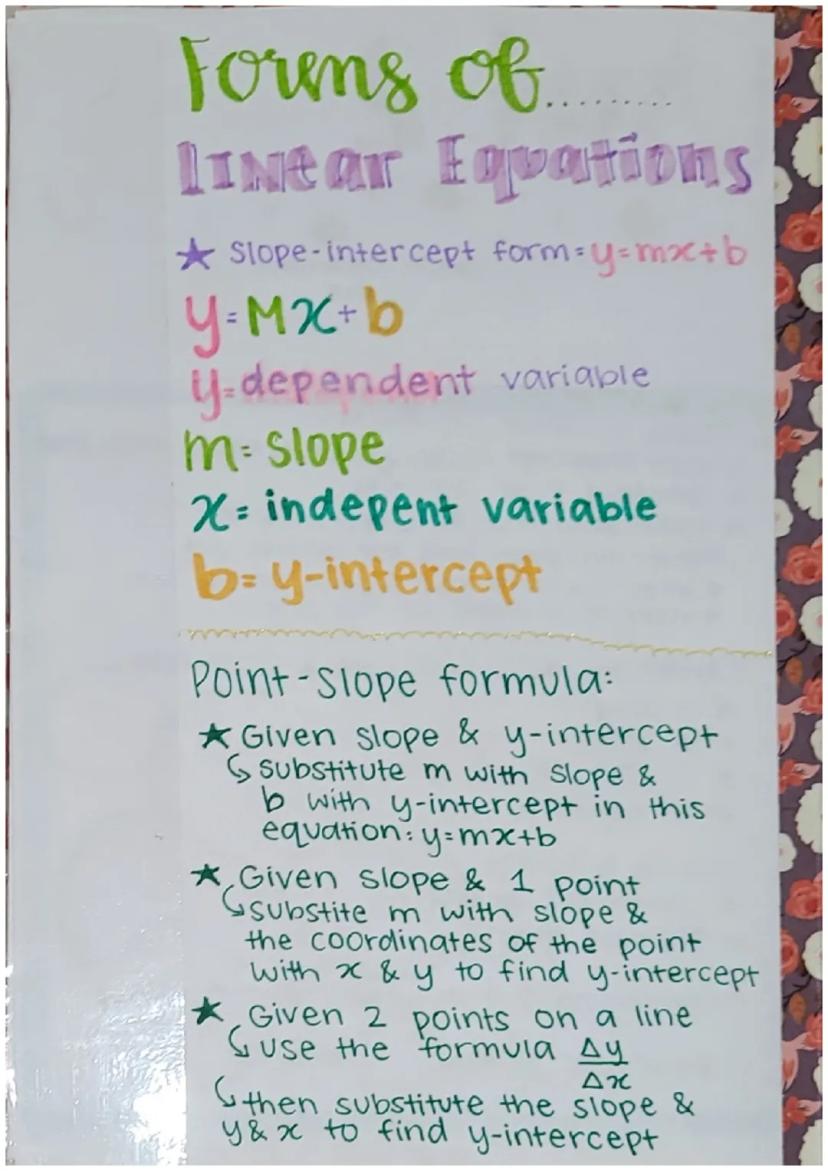 Forms of.........
Linear Equations
★ Slope-intercept form=y=mx+b
y=Mx+b
y=dependent variable
m=slope
x=indepent variable
b=y-intercept
Point-Slope formula:
★ Given slope & y-intercept
↳ substitute m with slope &
b with y-intercept in this
equation: y=mx+b
★ Given slope & 1 point
↳ substite m with slope &
the coordinates of the point
with x & y to find y-intercept
★ Given 2 points on a line
↳ use the formula Δy/Δx
↳ then substitute the slope &
y & x to find y-intercept